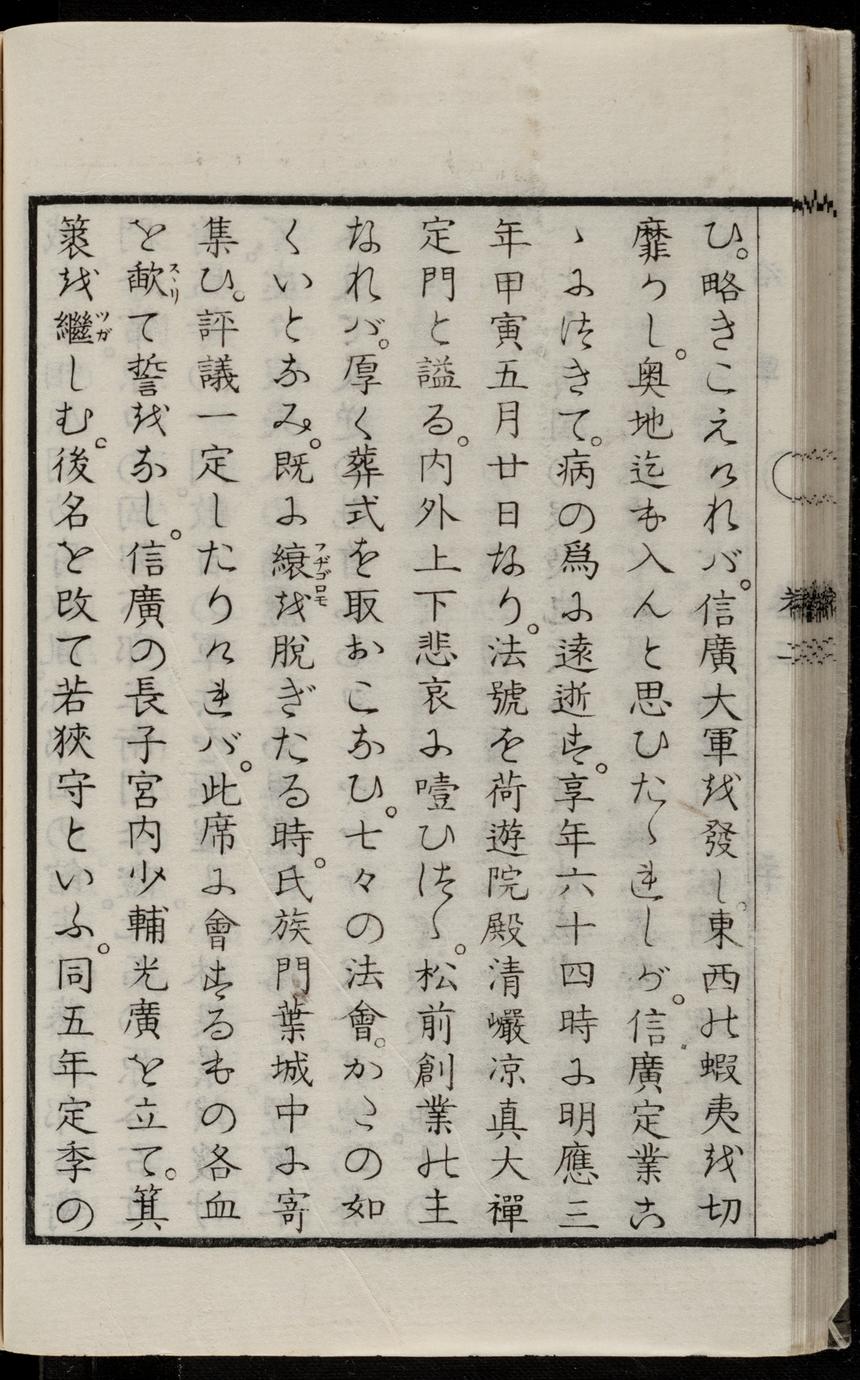 ひ。略きこえけれバ。信廣大軍を發し。東西の蝦夷を切
靡かし。奥地迄も入んと思ひたゝれしガ。信廣定業こ
ゝにつきて。病の爲に遠逝す。享年六十四時に明應三
年甲寅五月廿日なり。法號を荷遊院殿清巖凉真大禪
定門と謚る。内外上下悲哀に噎ひつゝ。松前創業の主
なれバ。厚く葬式を取おこなひ。七々の法會。かたの如
くいとなみ。既に縗フヂゴロモを脱ぎたる時。氏族門葉城中に寄
集ひ。評議一定したりけれバ。此席に會するもの各血
を歃スヽリて誓をなし。信廣の長子宮内少輔光廣を立て。箕
裘を繼ツガしむ。後名を改て若狹守といふ。同五年定季の